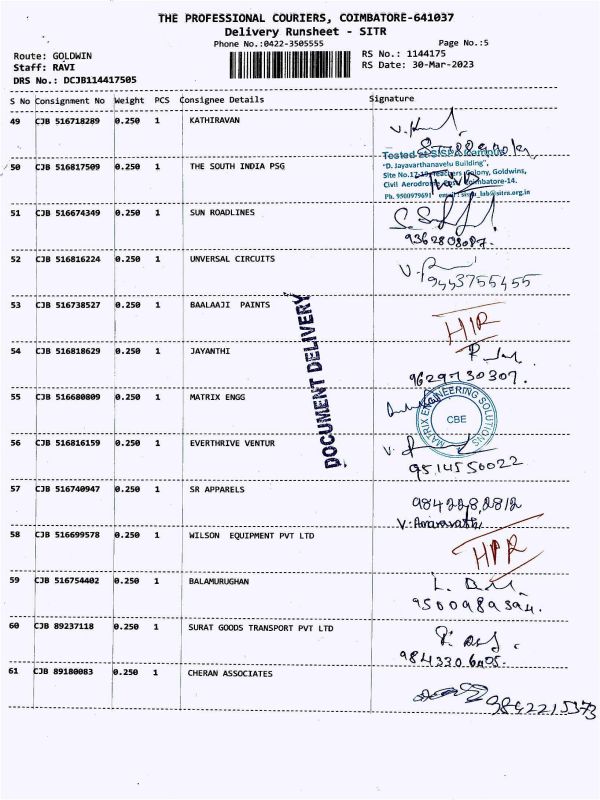 THE PROFESSIONAL COURIERS, COIMBATORE-641037
Delivery Runsheet - SITR
Phone No.:0422-3505555 Page No.:5
Route: GOLDWIN RS No.: 1144175
Staff: RAVI RS Date: 30-Mar-2023
DRS No.: DCJB114417505
S No Consignment No Weight PCS Consignee Details Signature
49 CJB 516718289 0.250 1 KATHIRAVAN
50 CJB 516817509 0.250 1 THE SOUTH INDIA PSG
"D. Jayavarthanavelu Building",
Site No.17-19, Teachers Colony, Goldwins,
Civil Aerodrome Coimbatore-14.
Ph. 9500979691
51 CJB 516674349 0.250 1 SUN ROADLINES
9362808087.
52 CJB 516816224 0.250 1 UNVERSAL CIRCUITS
9443755455
53 CJB 516738527 0.250 1 BAALAAJI PAINTS
DOCUMENT DELIVERY
54 CJB 516818629 0.250 1 JAYANTHI
9629730307.
55 CJB 516680809 0.250 1 MATRIX ENGG
MATRIX ENGINEERING SOLUTIONS
CBE
56 CJB 516816159 0.250 1 EVERTHRIVE VENTUR
9514550022
57 CJB 516740947 0.250 1 SR APPARELS
58 CJB 516699578 0.250 1 WILSON EQUIPMENT PVT LTD
59 CJB 516754402 0.250 1 BALAMURUGHAN
9500989394.
60 CJB 89237118 0.250 1 SURAT GOODS TRANSPORT PVT LTD
61 CJB 89180083 0.250 1 CHERAN ASSOCIATES